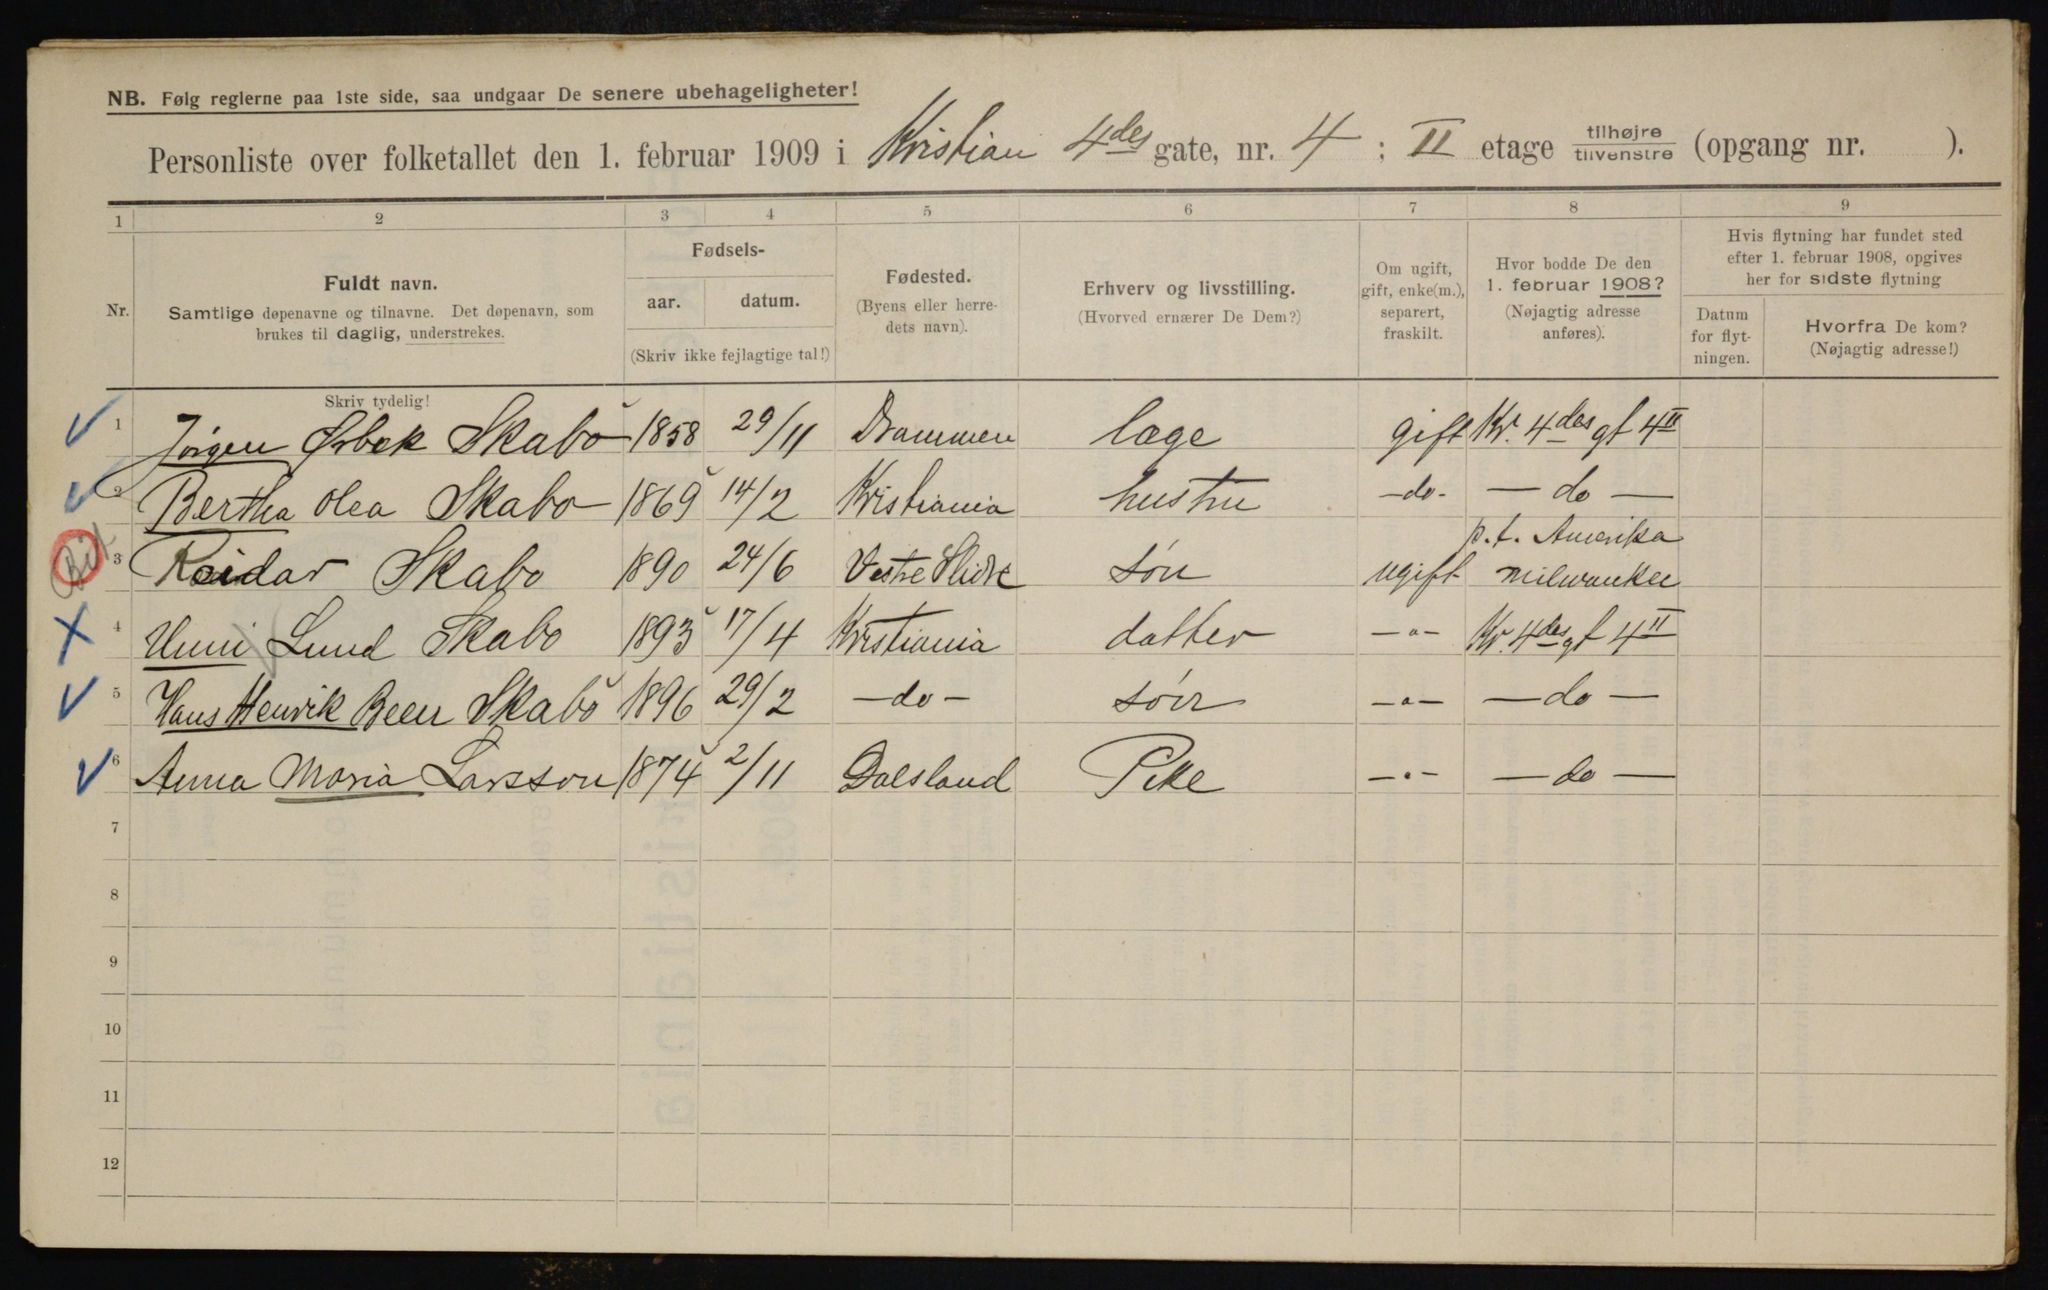 NB. Følg reglerne paa 1ste side, saa undgaar De senere ubehageligheter!
Personliste over folketallet den 1. februar 1909 i Kristian 4des gate, nr. 4 ; II etage tilhøjre tilvenstre (opgang nr. ).
1 2 3 4 5 6 7 8 9
Nr.
Fuldt navn.
Samtlige døpenavne og tilnavne. Det døpenavn, som
brukes til daglig, understrekes.
Fødsels-
aar. datum.
(Skriv ikke fejlagtige tal!)
Fødested.
(Byens eller herre-
dets navn).
Erhverv og livsstilling.
(Hvorved ernærer De Dem?)
Om ugift,
gift, enke(m.),
separert,
fraskilt.
Hvor bodde De den
1. februar 1908?
(Nøjagtig adresse
anføres).
Hvis flytning har fundet sted
efter 1. februar 1908, opgives
her for sidste flytning
Datum
for flyt-
ningen.
Hvorfra De kom?
(Nøjagtig adresse!)
Skriv tydelig!
1 Jørgen Ørbek Skabo 1858 29/11 Drammen læge gift Kr. 4des gt 4 II
2 Bertha Olea Skabo 1869 14/2 Kristiania hustru -do- — do —
p.t. Amerika
3 Reidar Skabo 1890 24/6 Vestre Slidre søn ugift milwaukee
4 Unni Lund Skabo 1893 17/4 Kristiania datter -"- Kr. 4des gt 4 II
5 Hans Henrik Beer Skabo 1896 29/2 — do — søn -"- — do —
6 Anna Maria Larsson 1874 2/11 Dalsland Pike -"- — do —
7
8
9
10
11
12